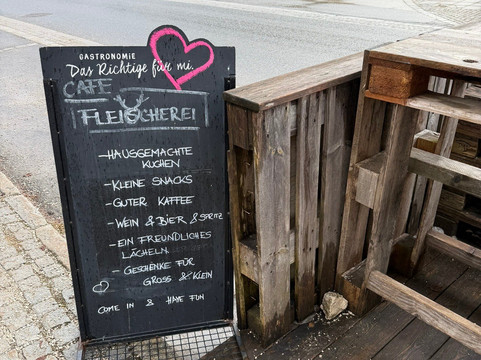 GASTRONOMIE
Das Richtige für mi.
CAFE
FLEISCHEREI
-HAUSGEMACHTE
KUCHEN
-KLEINE SNACKS
-GUTER KAFFEE
-WEIN & BIER & SPRITZ
-EIN FREUNDLICHES
LÄCHELN
-GESCHENKE FÜR
GROSS & KLEIN
COME IN & HAVE FUN